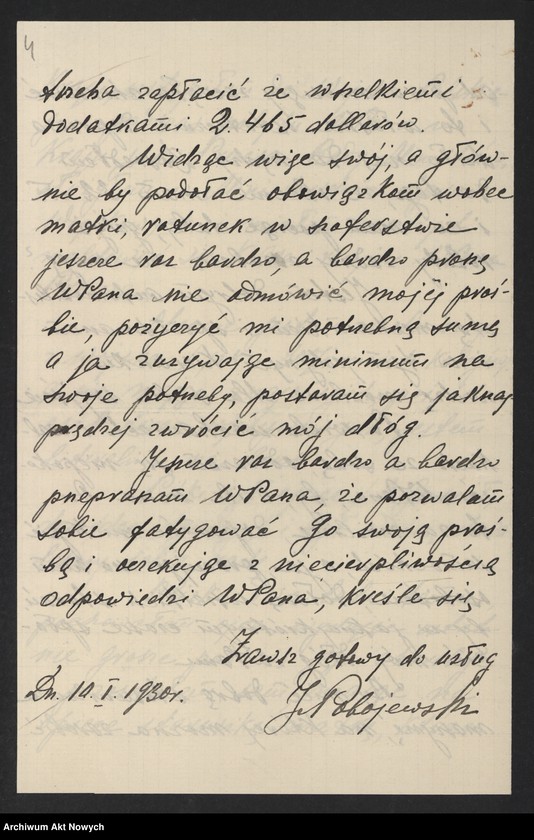 4
trzeba zapłacić ze wszelkiemi
dodatkami 2.465 dollarów.
Widząc więc swój, a głów-
nie by podołać obowiązkom wobec
matki, ratunek w szoferstwie
jeszcze raz bardzo, a bardzo proszę
WPana nie odmówić mojej proś-
bie, pożyczyć mi potrzebną sumę
a ja zużywając minimum na
swoje potrzeby, postaram się jaknaj
prędzej zwrócić mój dłóg.
Jeszcze raz bardzo a bardzo
przepraszam WPana, że pozwalam
sobie fatygować Go swoją proś-
bą i oczekując z niecierpliwością
odpowiedzi WPana, kreślę się
Zawsze gotowy do usług
Dn. 10.I.1930r.
Archiwum Akt Nowych